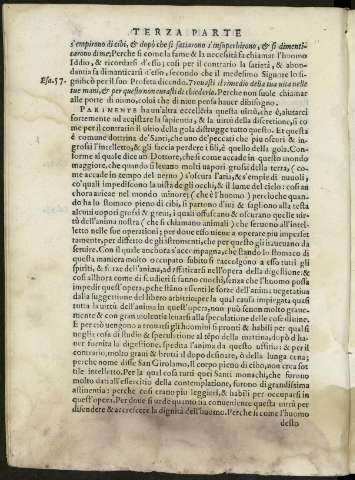 TERZA PARTE
s'empirono di cibi, & dopò che si satiarono s'insuperbirono, & si dimenti-
carono di me. Perche si come la fame & la necessità fa chiamar l'huomo
Iddio, & ricordarsi d'esso; così per il contrario la satietà, & abon
dantia fa dimanticarsi d'esso, secondo che il medesimo Signore lo si-
Esa. 57. gnificò per il suo Profeta dicendo. Trovasti il rimedio della tua vita nelle
tue mani, & per questo non curasti di chiederlo. Perche non suole chiamar
alle porte di niuno, colui che di niuno pensa hauer disbisogno.
PARIMENTE ha un'altra eccellētia questa uirtù, che è, aiutarci
fortemente ad acquistare la sapientia, & la uirtù della discretione, sì co
me per il contrario il uitio della gola distrugge tutto questo. Et questa
è commune dottrina de' Santi, che uno de' peccati che piu oscuri & in-
grossi l'intelletto, & gli faccia perdere i fili, è quello della gola. Con-
forme al quale dice un Dottore, che sì come accade in questo mondo
maggiore, che quando si leuano molti uapori grossi della terra, (co
me accade in tempo del uerno) s'oscura l'aria, & s'empie di nuuoli,
co' quali impediscono la uista de gli occhi, & il lume del cielo: così an
chora auiene nel mondo minore; (che è l'huomo) percioche quan-
do ha lo stomaco pieno di cibi, si partono d'ini & sagliono alla testa
alcuni uapori grossi & greui, i quali offuscano & oscurano quelle uir
tù dell'anima nostra (che si chiamano animali) che seruono all'intel
letto nelle sue operationi; per doue esso uiene a operare piu imperfet
tamente, per difetto de gli istromenti, che per questo gli ha uenano da
seruire. Con il quale anchora s'accompagna, che stando lo stomaco di
questa maniera molto occupato subito si raccolgono a esso tutti gli
spiriti, & forze dell'anima, ad affaticarsi nell'opera della digestione: &
così allhora come di scudieri si fanno cuochi, senza che l'huomo possa
impedir quest'opera, perche stāno essenti le forze dell'anima uegetatiua
dalla suggettione del libero arbitrio; per la qual causa impiegata quasi
tutta la uirtù dell'anima in quest'opera, non può senon molto graue-
mente & con gran uiolentia leuarsi alla speculatione delle cose diuine.
E per ciò uengono a trouarsi gli huomini sì pronti & habili per qual si
uoglia cosa di studio & speculatione al tēpo della mattina, dopò d'ha-
uer fornita la digestione, spedita l'anima da questo uffitio: & per il
contrario, molto graui & brutti il dopo desinare, ò della lunga cena;
perche nome disse San Girolamo. Il corpo pieno di cibo, non crea sot
tile intelletto. Per la qual cosa tutti quei Santi monachi, che furono
molto dati all'essercitio della contemplatione, furono di grandissima
astinentia: perche così erano piu leggieri, & habili per occuparsi in
quest'opera. Per doue si uede quanto sia conueniente questa uirtù per
difendere & accrescere la dignità dell'huomo. Perche sì come l'huomo
desto